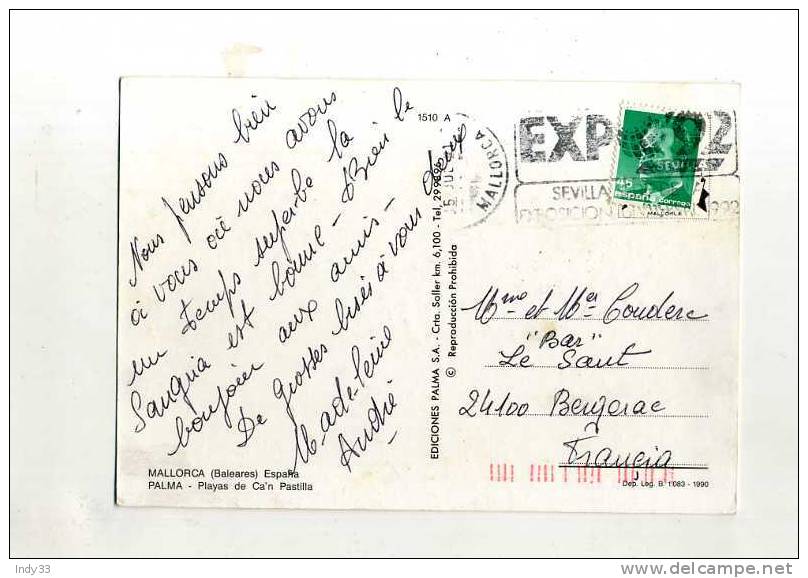 1510 A
Nous pensons bien
à vous où nous avons
un temps superbe la
Sangria est bonne - Bien le
bonjour aux amis -
De grosses bises à vous deux
Madeleine
André
MALLORCA (Baleares) España
PALMA - Playas de Ca'n Pastilla
EDICIONES PALMA S.A. - Crta. Soller km. 6,100 - Tel.
© Reproducción Prohibida
MALLORCA
JUL
EXPO 92
SEVILLA
EXPOSICION
45
españa correos
Mme et Mer Couderc
"Bar"
Le Saut
24100 Bergerac
Francia
Dep. Leg. B. 1083 - 1990
Indy33
delcampe.net